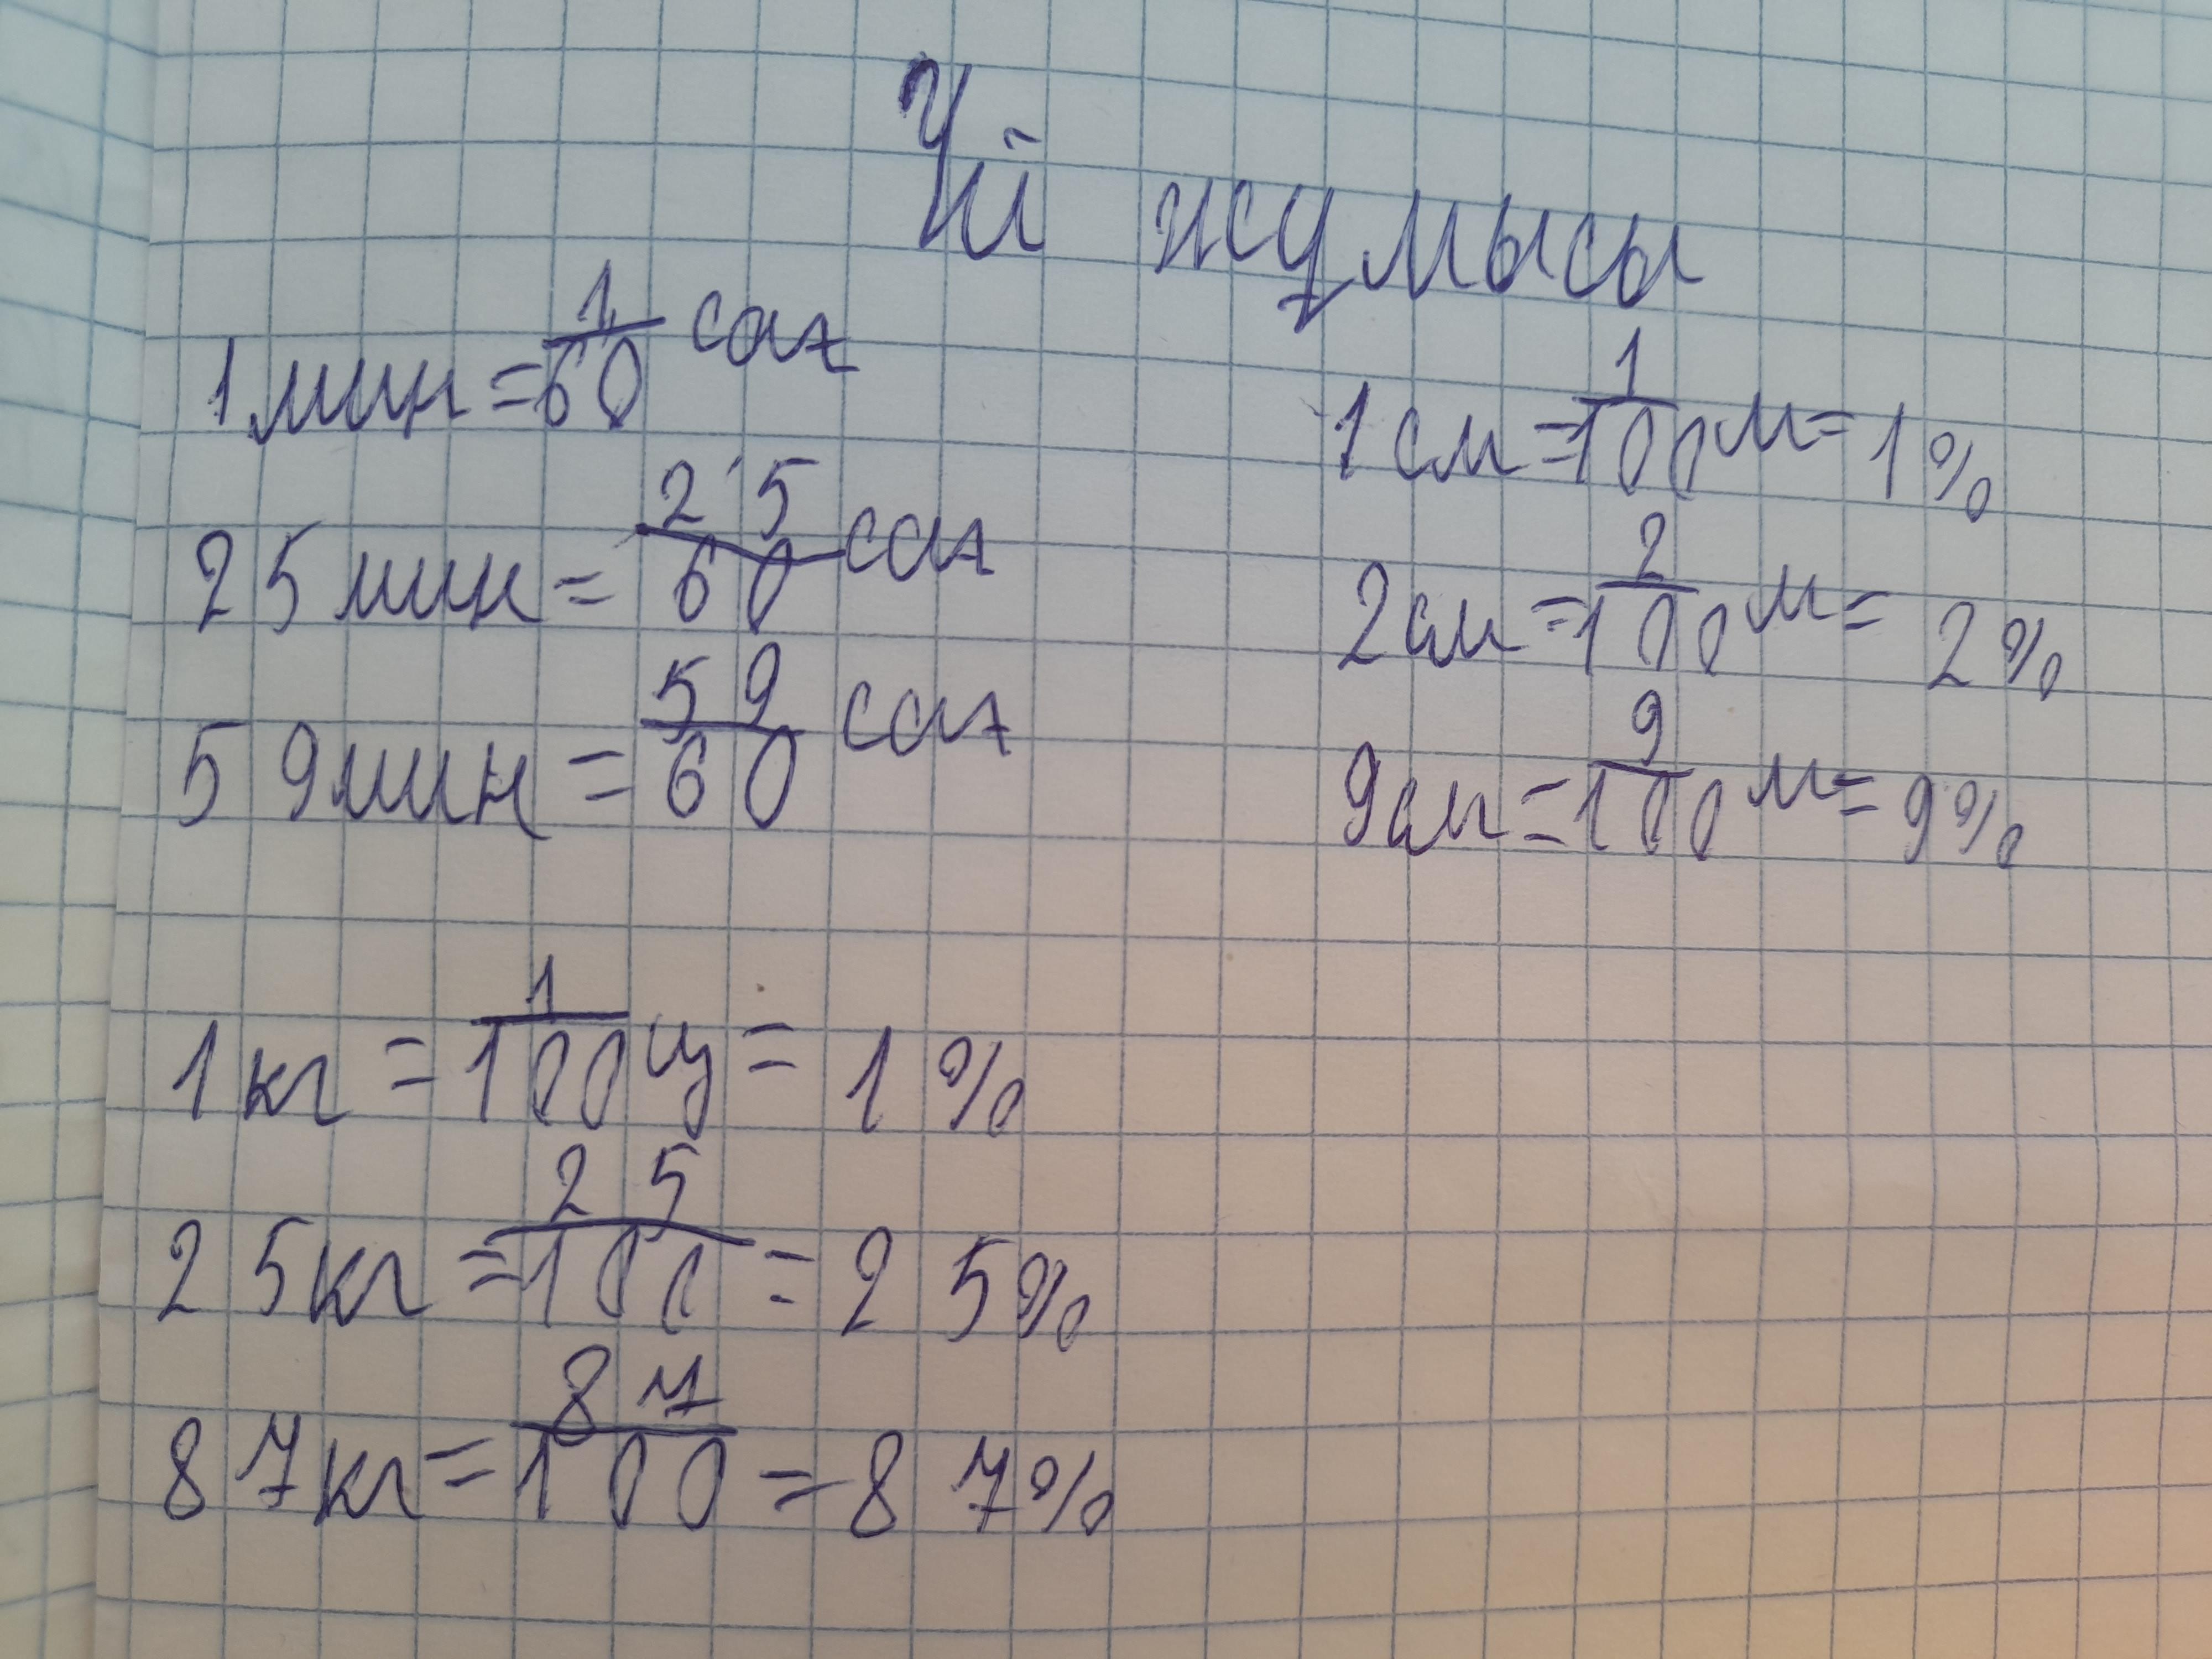 Үй жұмысы
1 мин = 1/60 сағ
25 мин = 25/60 сағ
59 мин = 59/60 сағ
1 см = 1/100 м = 1%
2 см = 2/100 м = 2%
9 см = 9/100 м = 9%
1 кг = 1/100 ц = 1%
25 кг = 25/100 = 25%
87 кг = 87/100 = 87%